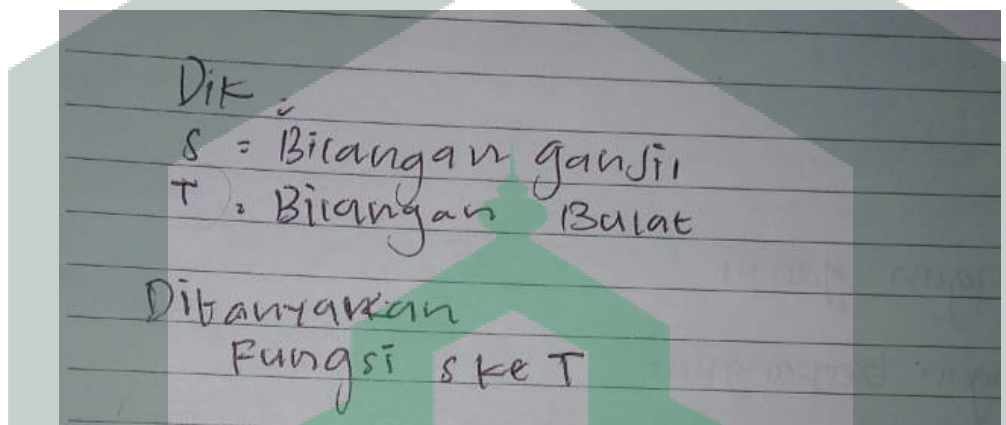 Dik :
S = Bilangan ganjil
T = Bilangan Bulat
Ditanyakan
Fungsi s ke T